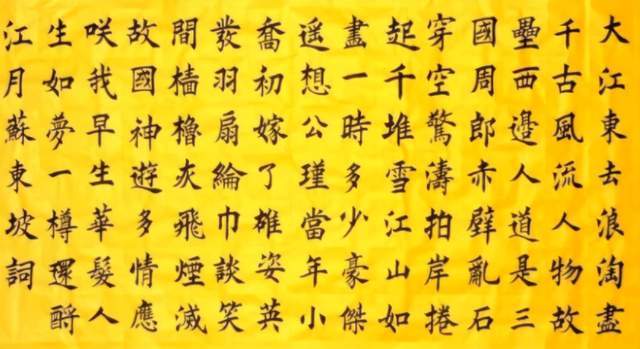 大江東去浪淘盡
千古風流人物故
壘西邊人道是三
國周郎赤壁亂石
穿空驚濤拍岸捲
起千堆雪江山如
畫一時多少豪傑
遥想公瑾當年小
喬初嫁了雄姿英
發羽扇綸巾談笑
間檣櫓灰飛煙滅
故國神遊多情應
咲我早生華髮人
生如夢一樽還酹
江月蘇東坡詞